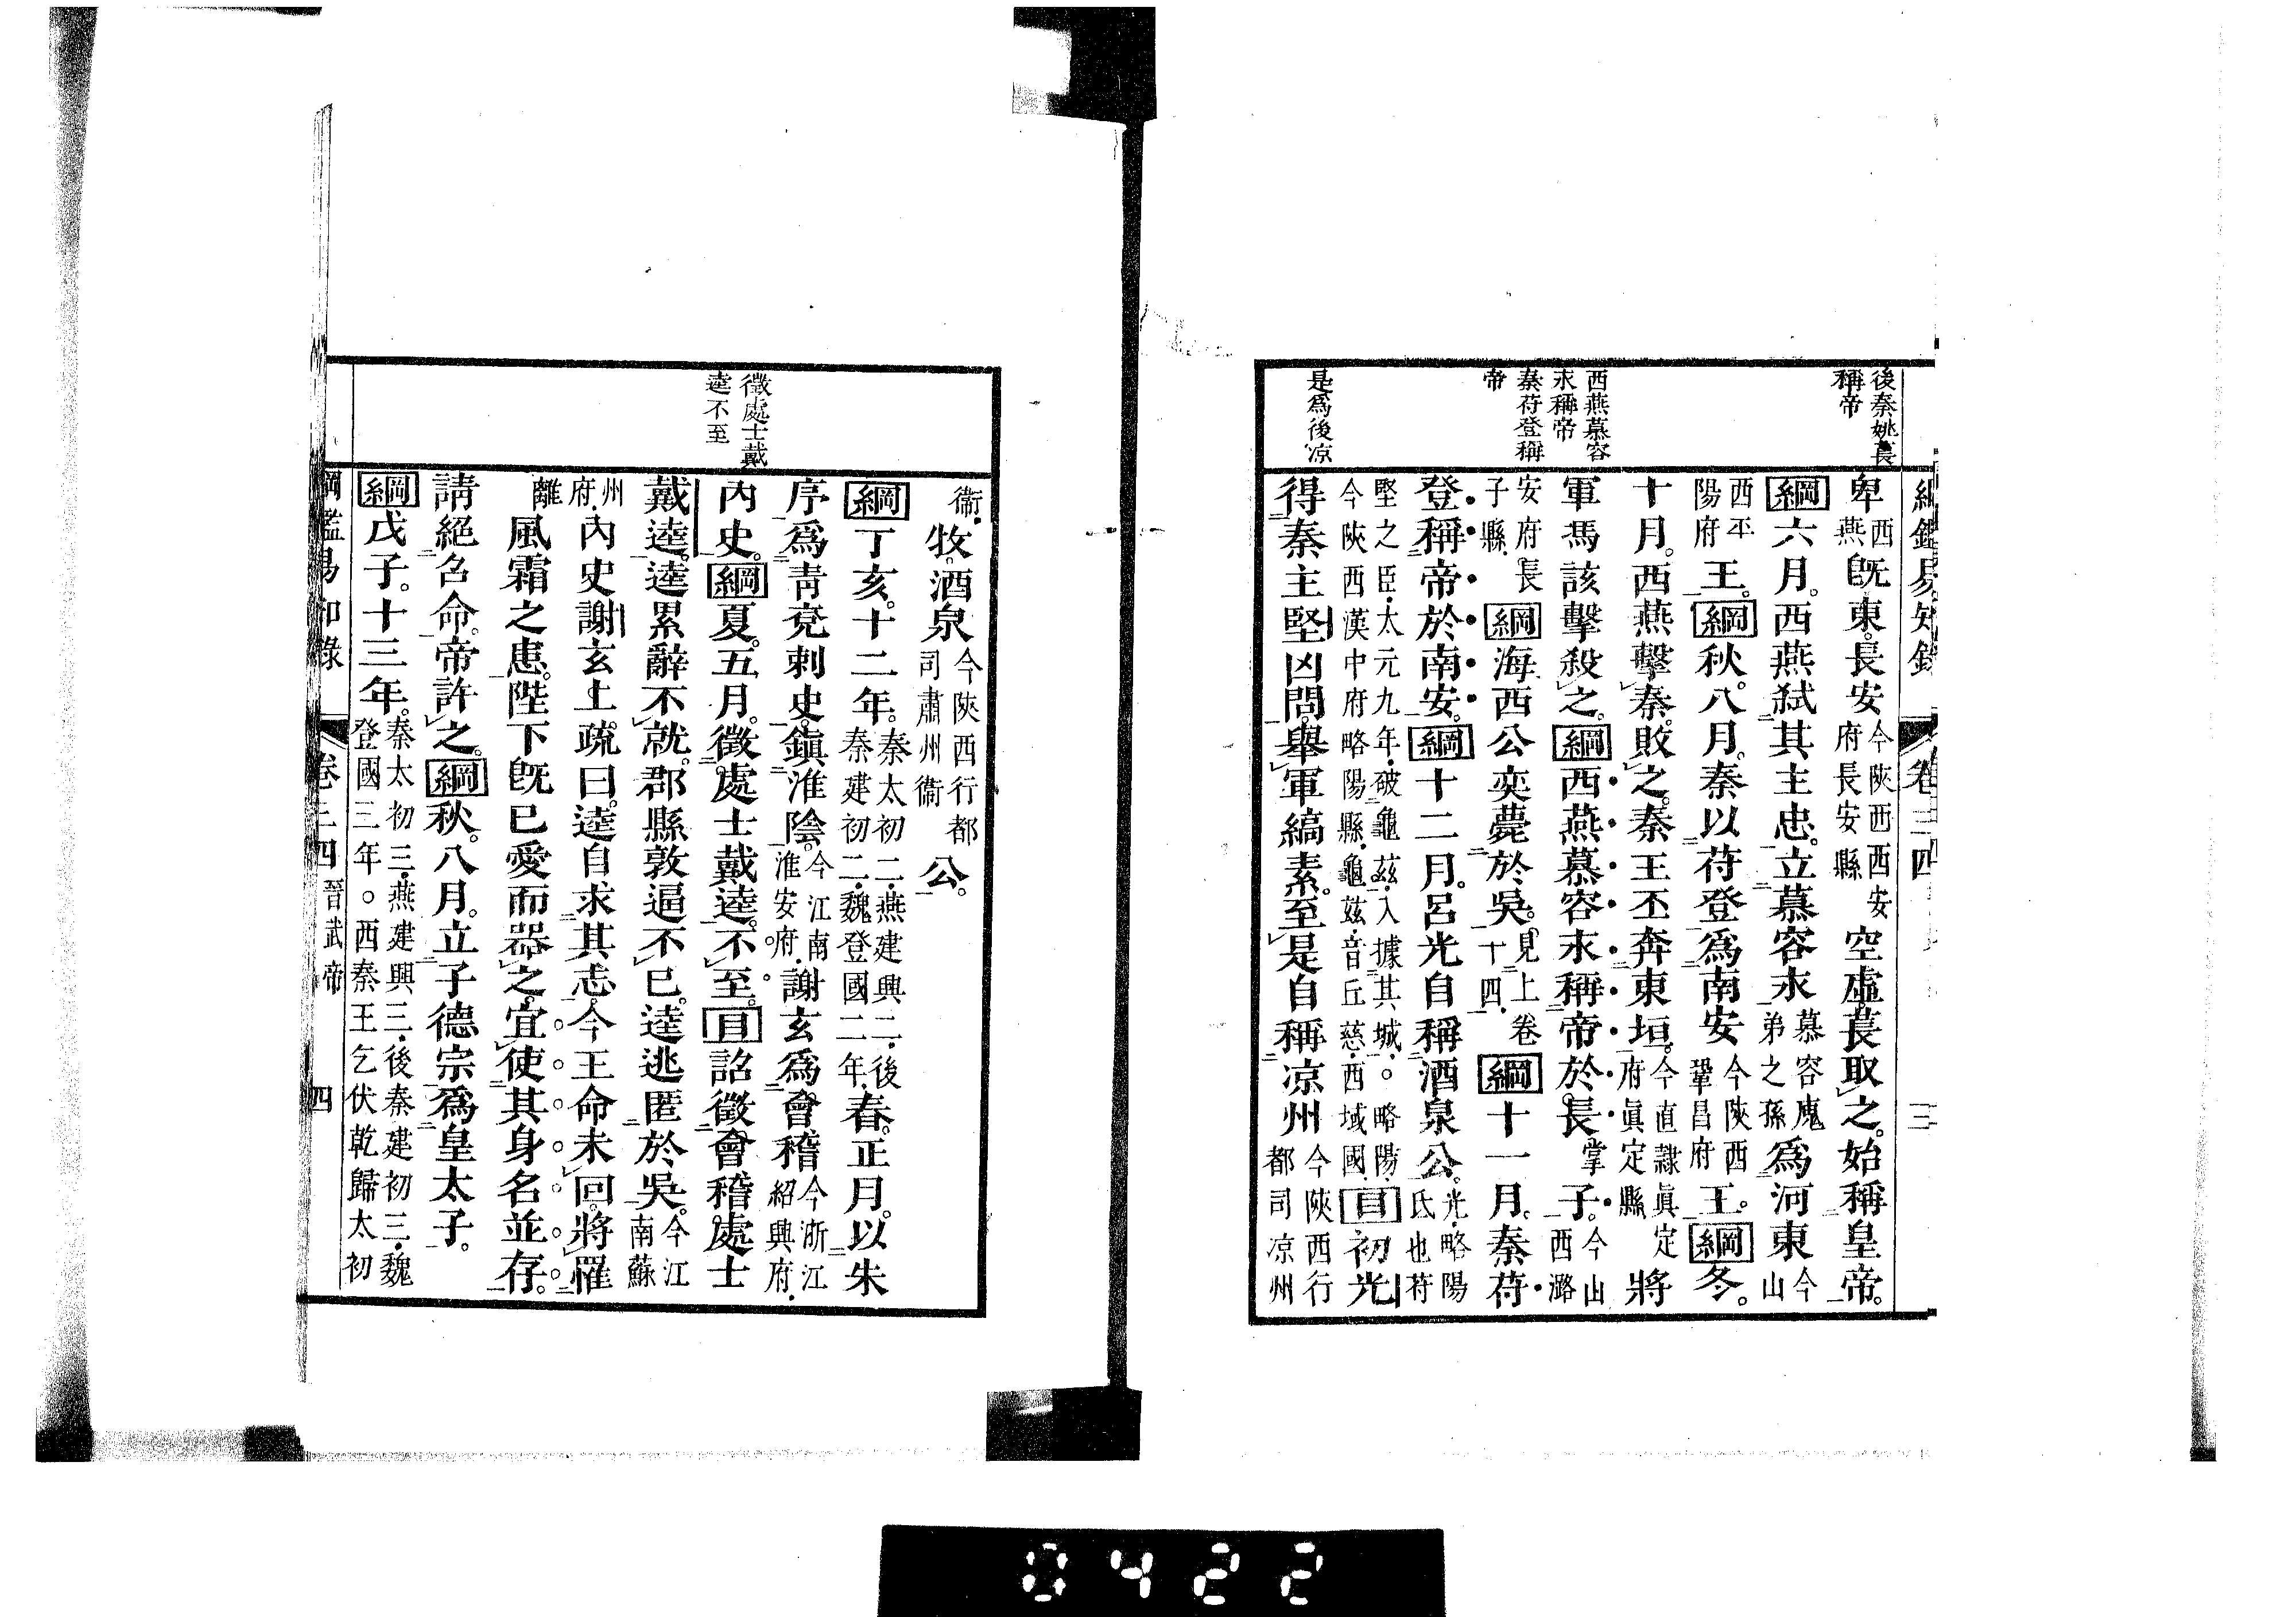 綱鑑易知錄
卷三四
三
後秦姚萇
稱帝
卑西燕既東。長安今陝西西安府長安縣空虛。萇取之。始稱皇帝。
綱六月。西燕弑其主忠。立慕容永慕容廆弟之孫爲河東今山
西平陽府王。綱秋。八月。秦以苻登爲南安今陝西鞏昌府王。綱冬。
十月。西燕擊秦。敗之。秦王丕奔東垣。今直隸眞定府眞定縣將
西燕慕容
永稱帝
秦苻登稱
帝
軍馮該擊殺之。綱西燕慕容永稱帝於長掌子。今山西潞
安府長子縣。綱海西公奕薨於吳。見上卷十四。綱十一月。秦苻
登稱帝於南安。綱十二月。呂光自稱酒泉公。光略陽氐也苻
堅之臣。太元九年。破龜茲。入據其城。○略陽今陝西漢中府略陽縣。龜茲音丘慈。西域國目初光
是爲後涼
得秦主堅凶問。舉軍縞素。至是自稱凉州今陝西行都司凉州
衞。牧。酒泉今陝西行都司肅州衞公。
綱丁亥。十二年。秦太初二。燕建興二。後秦建初二。魏登國二年。春。正月。以朱
序爲青兗刺史。鎭淮陰。今江南淮安府。謝玄爲會稽今浙江紹興府。
徵處士戴
逵不至
內史。綱夏。五月。徵處士戴逵。不至。目詔徵會稽處士
戴逵。逵累辭不就。郡縣敦逼不已。逵逃匿於吳。今江南蘇
州府。內史謝玄上疏曰。逵自求其志。今王命未回。將罹
離風霜之患。陛下既已愛而器之。宜使其身名並存。
請絕召命。帝許之。綱秋。八月。立子德宗爲皇太子。
綱戊子。十三年。秦太初三。燕建興三。後秦建初三。魏登國三年。○西秦王乞伏乾歸太初
綱鑑易知錄
卷三四
晉武帝
四
0422